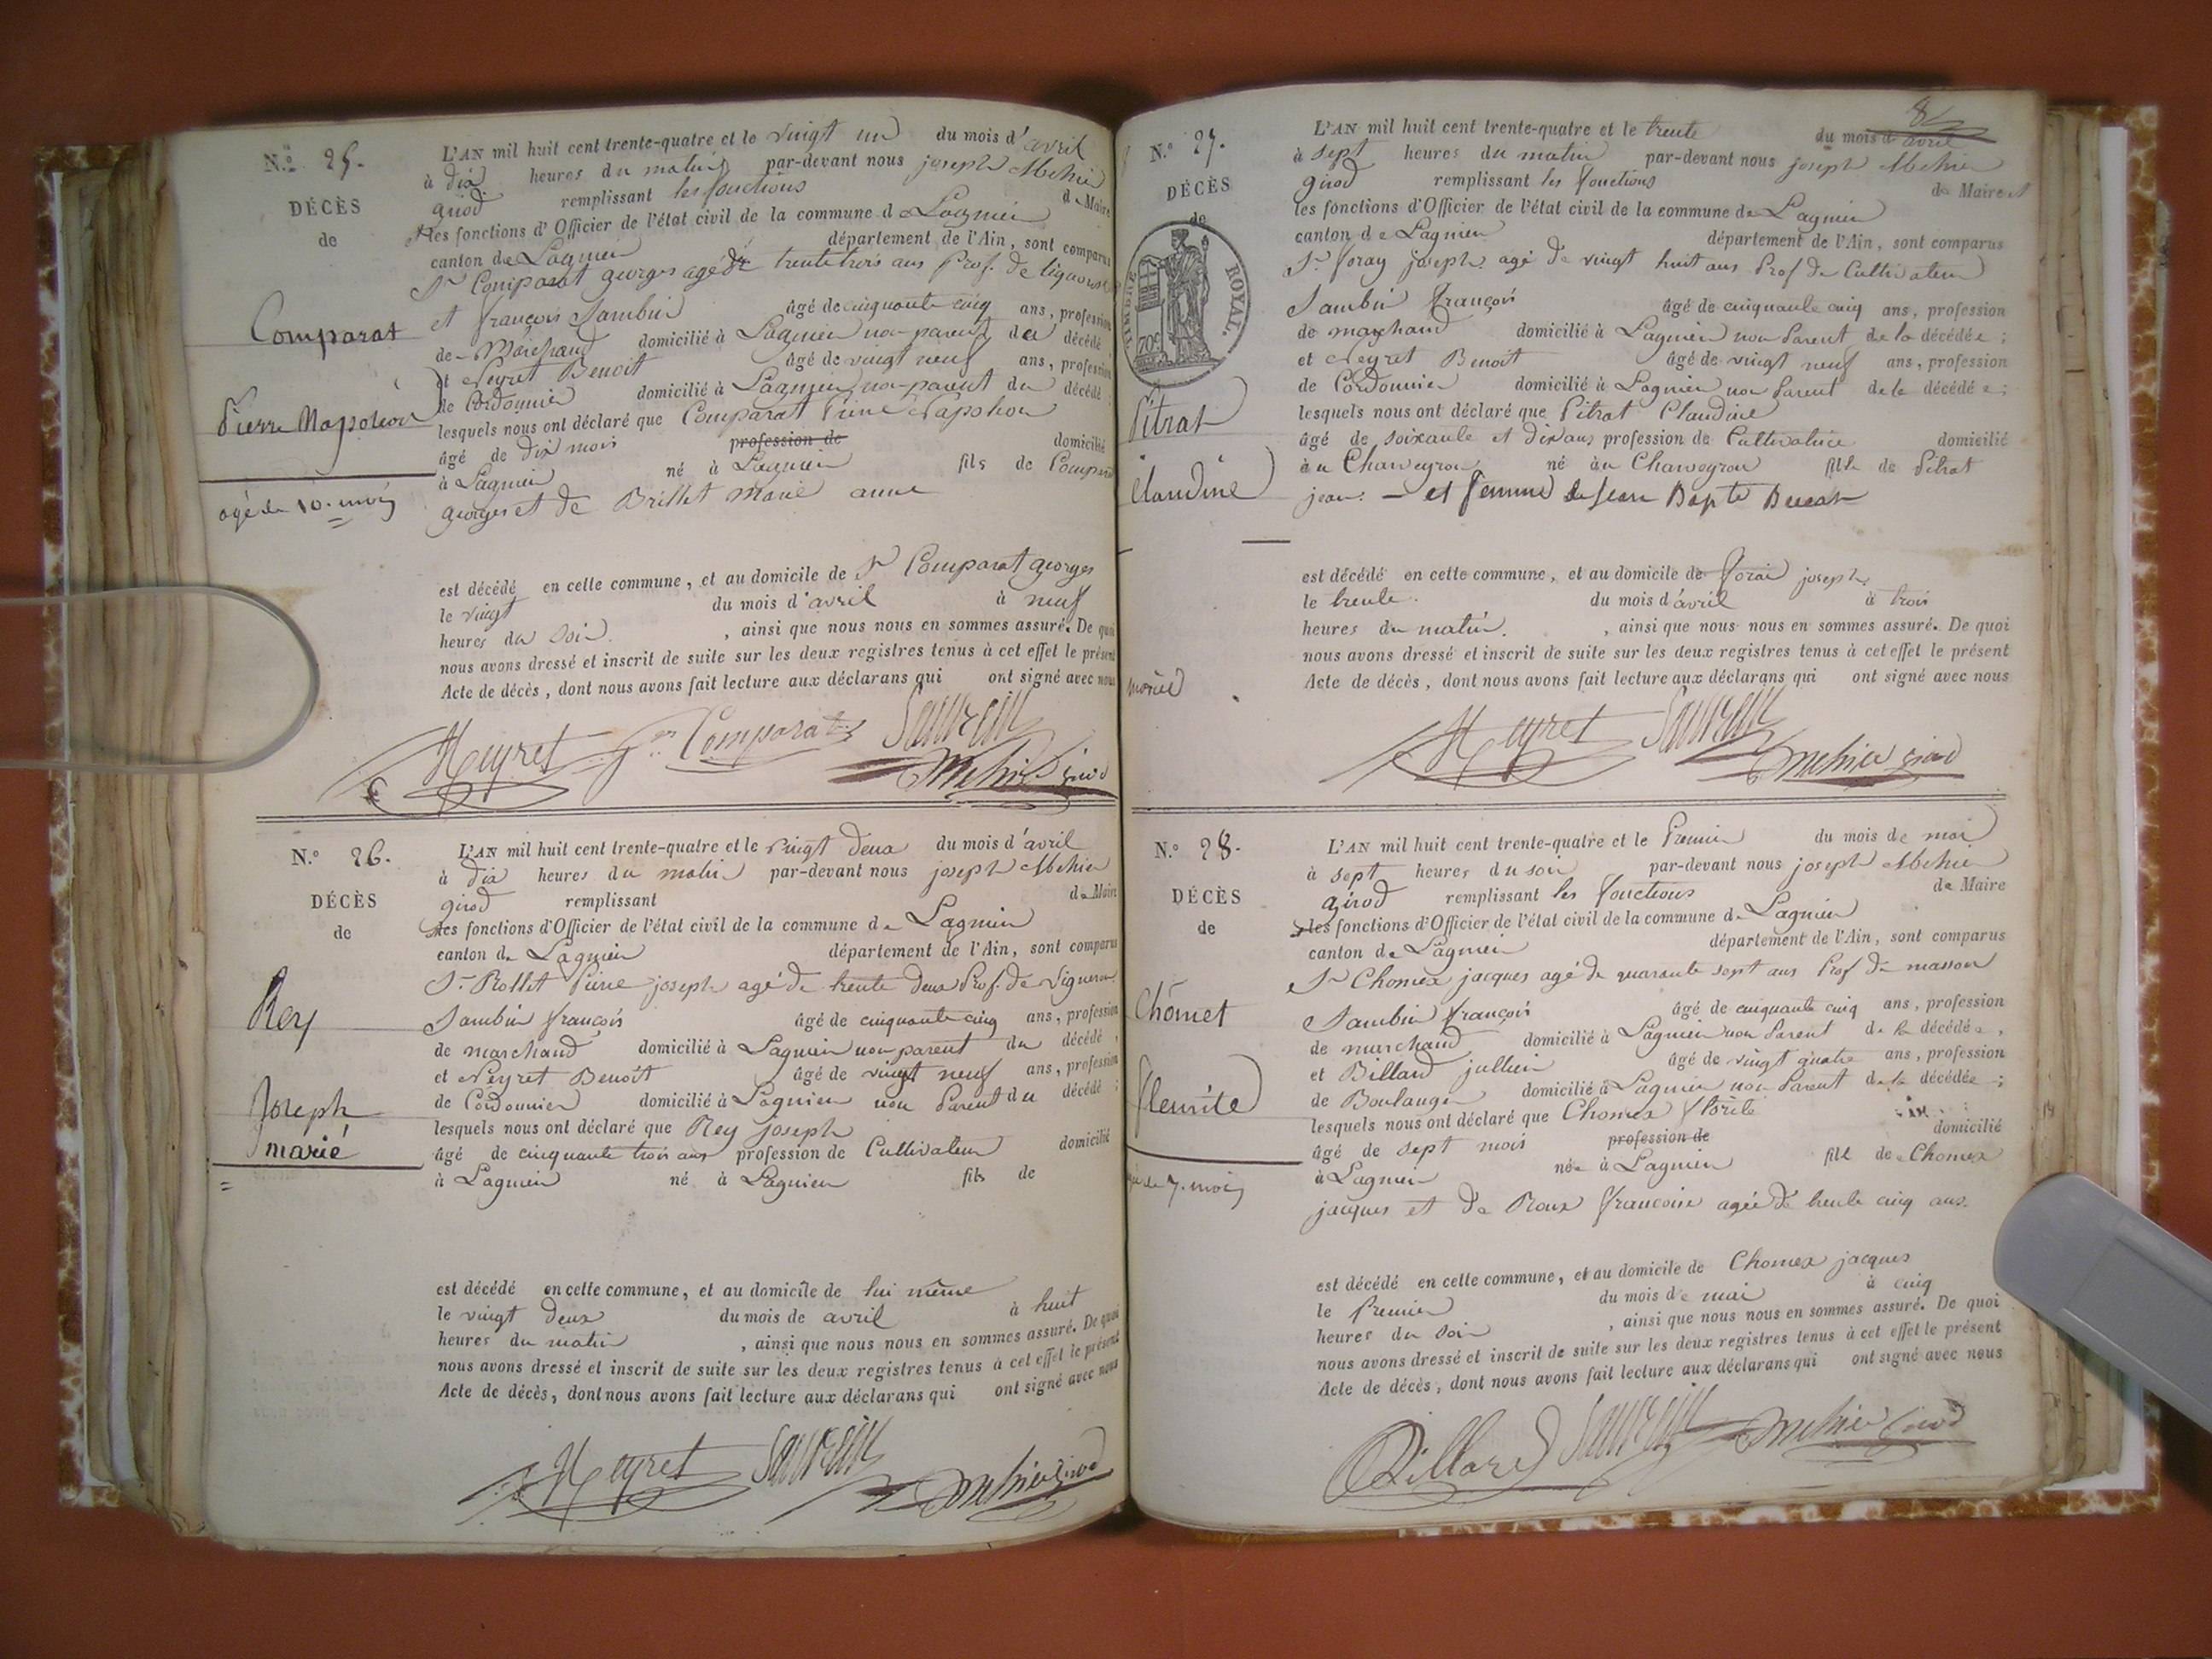 N.º 25.
DÉCÈS
de
Comparat
Pierre Napoléon
agé de 10. mois
L'AN mil huit cent trente-quatre et le vingt un du mois d'avril
à dix heures du matin par-devant nous joseph Mehier
girod remplissant les fonctions de Maire
et les fonctions d'Officier de l'état civil de la commune de Lagnieu
canton de Lagnieu département de l'Ain, sont comparus
Sr Comparat georges agé de trente trois ans Prof. de
et françois Sambin âgé de cinquante cinq ans, profession
de Marchand domicilié à Lagnieu non parent du décédé
et Neyret Benoit âgé de vingt neuf ans, profession
de Cordonnier domicilié à Lagnieu non parent du décédé
lesquels nous ont déclaré que Comparat Pierre Napoleon
âgé de dix mois profession de domicilié
à Lagnieu né à Lagnieu fils de Comparat
georges et de Brillet Marie anne
est décédé en cette commune, et au domicile de Sr Comparat georges
le vingt du mois d'avril à neuf
heures du soir. , ainsi que nous nous en sommes assuré. De quoi
nous avons dressé et inscrit de suite sur les deux registres tenus à cet effet le présent
Acte de décès, dont nous avons fait lecture aux déclarans qui ont signé avec nous
Neyret Comparat Mehier girod
N.º 26.
DÉCÈS
de
Rey
Joseph
marié
L'AN mil huit cent trente-quatre et le vingt deux du mois d'avril
à dix heures du matin par-devant nous joseph Mehier
girod remplissant de Maire
les fonctions d'Officier de l'état civil de la commune de Lagnieu
canton de Lagnieu département de l'Ain, sont comparus
Sr Rollet Pierre joseph agé de trente deux Prof. de Vigneron
Sambin françois âgé de cinquante cinq ans, profession
de marchand domicilié à Lagnieu non parent du décédé,
et Neyret Benoit âgé de vingt neuf ans, profession
de Cordonnier domicilié à Lagnieu non Parent du décédé ;
lesquels nous ont déclaré que Rey joseph
âgé de cinquante trois ans profession de Cultivateur domicilié
à Lagnieu né à Lagnieu fils de
est décédé en cette commune, et au domicile de lui même
le vingt deux du mois de avril à huit
heures du matin , ainsi que nous nous en sommes assuré. De quoi
nous avons dressé et inscrit de suite sur les deux registres tenus à cet effet le présent
Acte de décès, dont nous avons fait lecture aux déclarans qui ont signé avec nous
Neyret Mehier girod
N.º 27.
DÉCÈS
de
TIMBRE ROYAL.
70c
Pitrat
Claudine
L'AN mil huit cent trente-quatre et le trente du mois d'avril
à sept heures du matin par-devant nous joseph Mehier
girod remplissant les fonctions de Maire et
les fonctions d'Officier de l'état civil de la commune de Lagnieu
canton de Lagnieu département de l'Ain, sont comparus
Sr foray joseph agé de vingt huit ans Prof de Cultivateur
Sambin françois âgé de cinquante cinq ans, profession
de marchand domicilié à Lagnieu non Parent de la décédée ;
et Neyret Benoit âgé de vingt neuf ans, profession
de Cordonnier domicilié à Lagnieu non Parent de la décédée ;
lesquels nous ont déclaré que Pitrat Claudine
âgé de soixante et dix ans profession de Cultivatrice domicilié
à né fille de Pitrat
jean. - et femme de Jean Bapte
est décédé en cette commune, et au domicile de forai joseph
le trente. du mois d'avril à trois
heures du matin. , ainsi que nous nous en sommes assuré. De quoi
nous avons dressé et inscrit de suite sur les deux registres tenus à cet effet le présent
Acte de décès, dont nous avons fait lecture aux déclarans qui ont signé avec nous
Neyret Mehier girod
N.º 28.
DÉCÈS
de
Chomet
fleurite
de 7. mois
L'AN mil huit cent trente-quatre et le Premier du mois de mai
à sept heures du soir par-devant nous joseph Mehier
girod remplissant les fonctions de Maire
les fonctions d'Officier de l'état civil de la commune de Lagnieu
canton de Lagnieu département de l'Ain, sont comparus
Sr Chomex jacques agé de quarante sept ans Prof de masson
Sambin françois âgé de cinquante cinq ans, profession
de marchand domicilié à Lagnieu non Parent de la décédée,
et Billard jullien âgé de vingt quatre ans, profession
de Boulanger domicilié à Lagnieu non Parent de la décédée ;
lesquels nous ont déclaré que Chomex
âgé de sept mois profession de domicilié
à Lagnieu née à Lagnieu fille de Chomex
jacques et de Roux francoise agée de trente cinq ans.
est décédé en cette commune, et au domicile de Chomex jacques
le Premier du mois de mai à cinq
heures du soir , ainsi que nous nous en sommes assuré. De quoi
nous avons dressé et inscrit de suite sur les deux registres tenus à cet effet le présent
Acte de décès, dont nous avons fait lecture aux déclarans qui ont signé avec nous
Billard Mehier girod